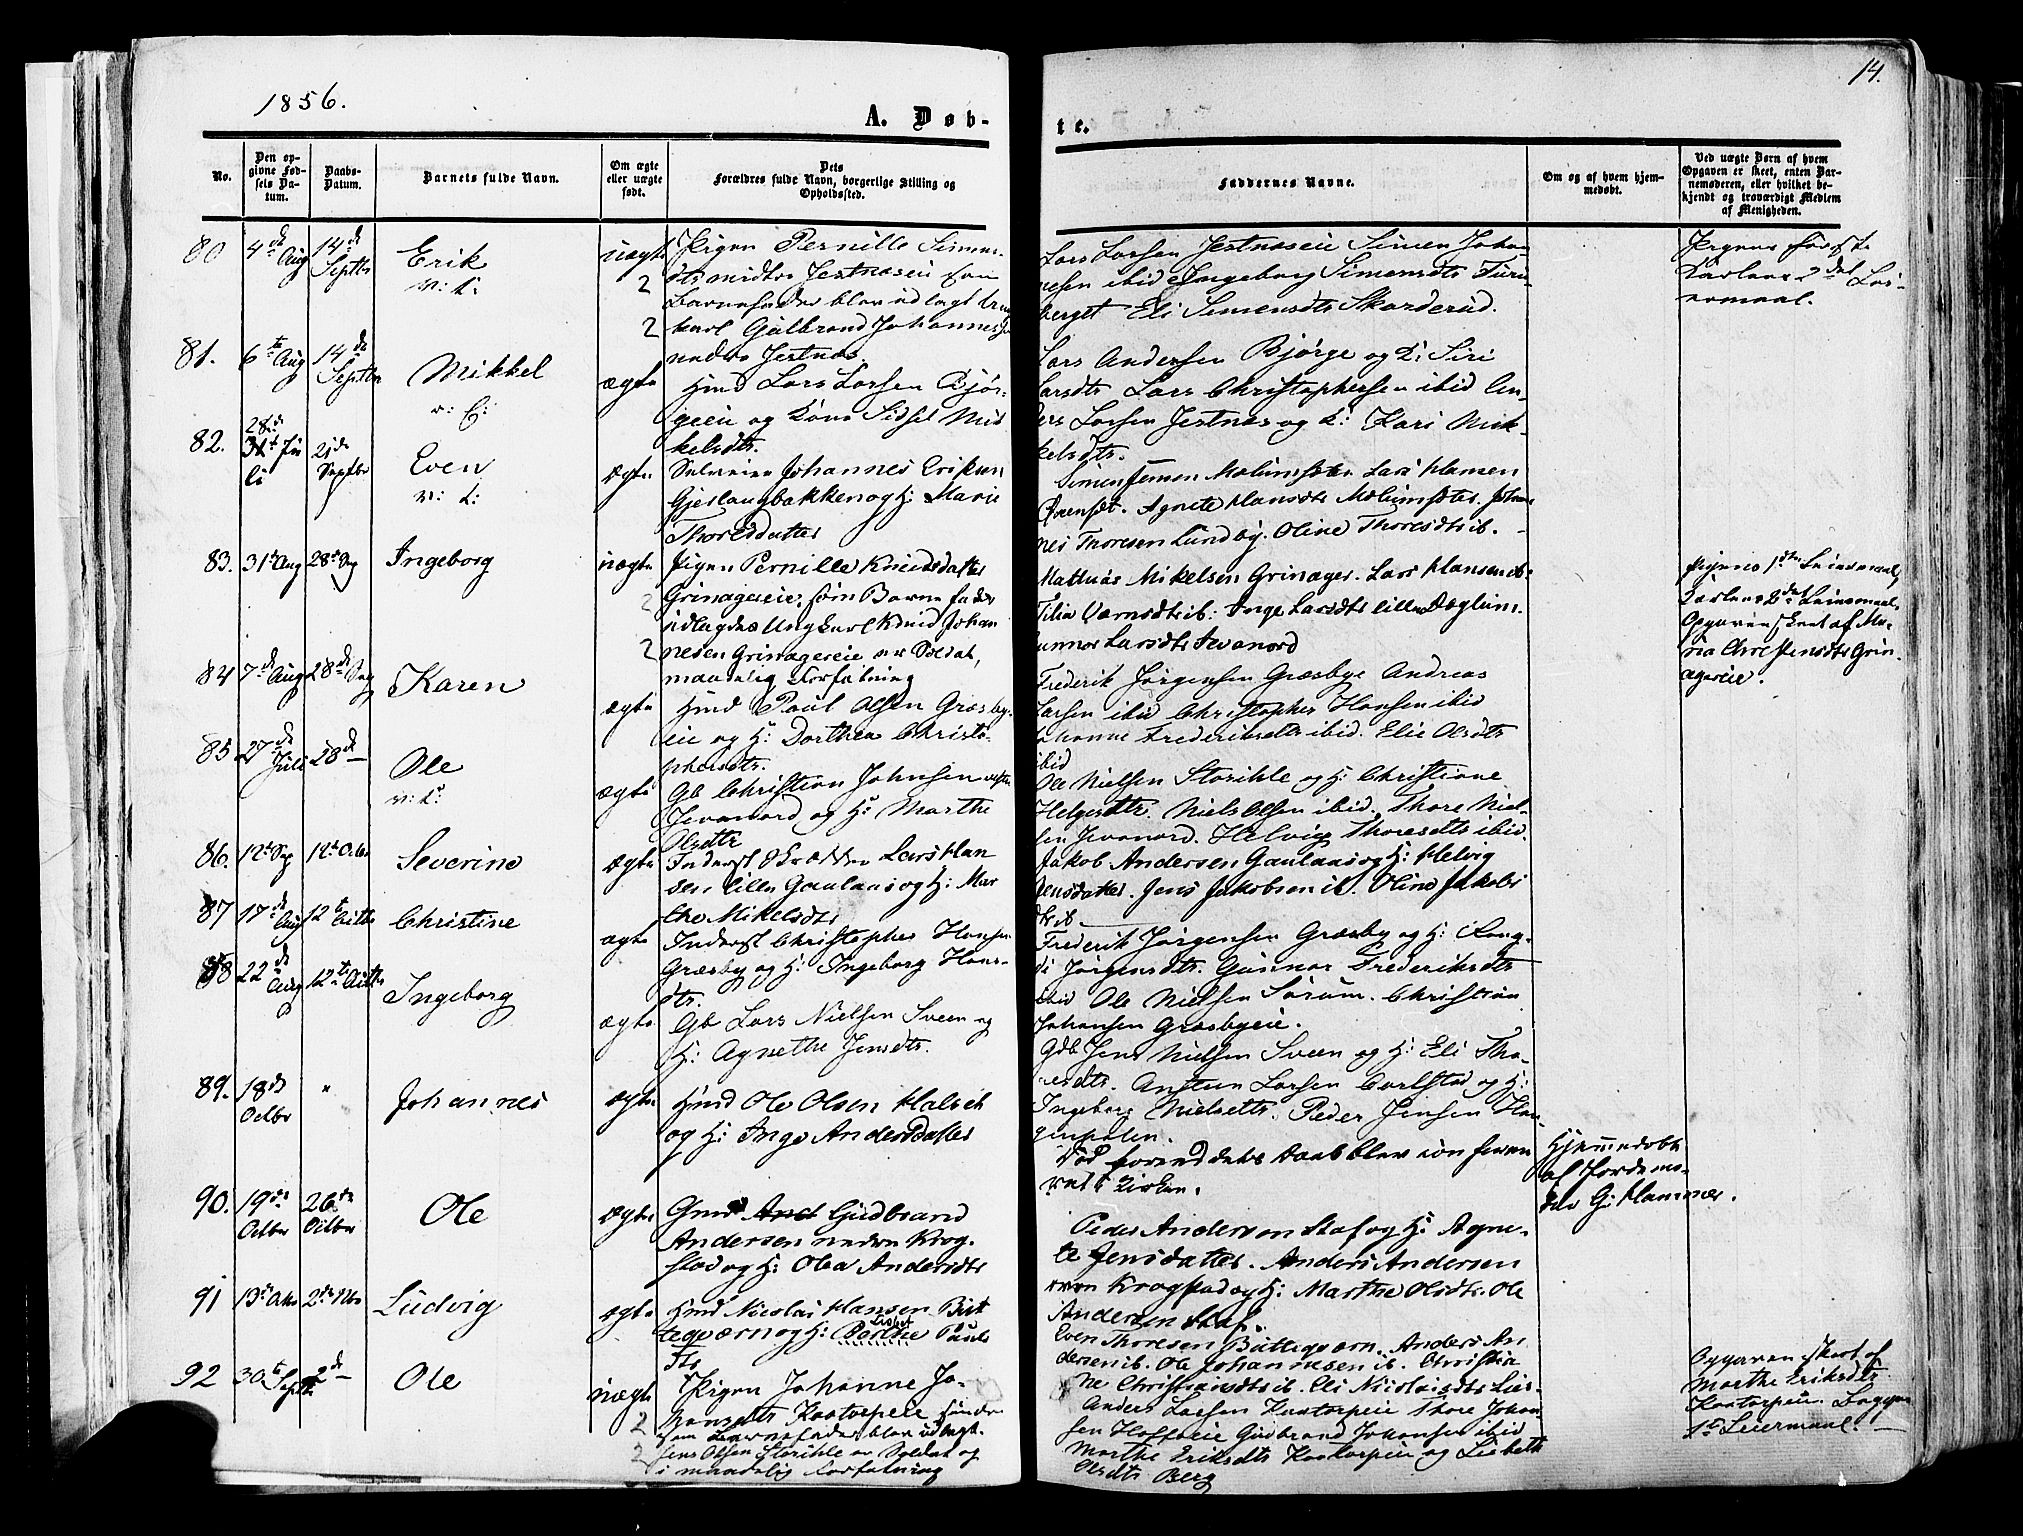 1856.
14.
A. Døb-
te.
No.
Den op-
givne Fød-
sels Da-
tum.
Daabs-
Datum.
Barnets fulde Navn.
Om ægte
eller uægte
født.
Dets
Forældres fulde Navn, borgerlige Stilling og
Opholdssted.
Faddernes Navne.
Om og af hvem hjem-
medøbt.
Ved uægte Børn af hvem
Opgaven er skeet, enten Bar-
nemoderen, eller hvilket be-
kjendt og troværdigt Medlem
af Menigheden.
80
4de Aug
14de Septbr
Erik
v: k:
uægte
2
2
Pigen Pernille Simens-
Jestnæseie som
Barnefader blev udlagt
karl Gulbrand Johannes
nedre Jestnæs.
Lars Larsen Jestnæseie Simen Johan-
nesen ibid Ingeborg Simensdtr Furu-
berget Eli Simensdtr Skarderud.
Pigens første
Karlens 2det Lei-
ermaal.
81.
6te Aug
14de Septbr
Mikkel
v: k:
ægte
Hmd Lars Larsen Bjør-
geeie og Kone Sidsel Mik
kelsdtr.
Lars Andersen Bjørge og K: Siri
Larsdtr Lars Christophersen ibid An-
ders Larsen Jestnæs og K: Kari Mik-
kelsdtr.
82.
28de
31t Ju
li
21de Septbr
Even
v: k:
ægte
Selveier Johannes Eriksen
Gjeslaugbakken og H: Marie
Thoresdatter
Simen Jensen Mælumsæter Lars Hansen
Agnete Hansdtr Mælumsæter. Johan
nes Thoresen Lundby. Oline Thoresdtr ib.
83.
31t Aug
28de Sep
Ingeborg
uægte
2
2
Pigen Pernille Knudsdatter
Grinagereie, som Barnefader
udlagdes Ungkarl Knud Johan
nesen Grinagereie er Soldat,
maadelig Forfatning
Mathias Mikelsen Grinager. Lars Hansen ib:
Inge Larsdtr lille Døglum.
Gunnor Larsdtr Jevanord
Pigens 1ste Leiermaal,
Karlens 2det Leiermaal,
Opgaven skeet af Ma-
ria Christensdtr Grin-
agereie.
84
7de Aug
28de Sep
Karen
ægte
Hmd Poul Olsen Græsby-
eie og H: Dorthea Christo-
phersdtr.
Frederik Jørgensen Græsbye Andreas
Larsen ibid Christopher Hansen ibid
Johanne Frederiksdtr ibid. Elie Olsdtr
ibid
85
27de Juli
28de —
Ole
v: k:
ægte
Gb Christian Johnsen
Jevanord og H: Marthe
Olsdtr
Ole Nielsen Storihle og H: Christiane
Helgesdtr. Niels Olsen ibid. Thore Niel-
sen Jevanord. Helvig Thoresdtr ibid.
86.
12te Sep
12te Octbr
Severine
ægte
Inderst Skrædder Lars Han
sen lille Gaulaas og H: Mar
the Mikelsdtr
Jakob Andersen Gaulaas og H: Helvig
Jensdatter. Jens Jakobsen ib. Oline Jakobs
dtr ib
87
17de Aug
12te Octbr
Christine
ægte
Inderst Christopher Hansen
Græsby og H: Ingeborg Hans-
dtr.
Frederik Jørgensen Græsby og H: Rang-
di Jørgensdtr. Gunnor Frederiksdtr
ibid Ole Nielsen Sørum. Christian
Johansen Græsbyeie.
88
22de Aug
12te Octbr
Ingeborg
ægte
Gb Lars Nielsen Sveen og
H: Agnethe Jensdtr.
Gdb Jens Nielsen Sveen og H: Eli Tho-
resdtr. Ansteen Larsen Carlstad og H:
Ingeborg Nielsdtr. Peder Jensen Hau-
gerhalen.
89.
18de Octbr
"
Johannes
ægte
Hmd Ole Olsen Halset
og H: Inge Andersdatter
Død forend dets Daab blev
i Kirken.
Hjemmedøbt
af Jordemo-
der G: Hammer.
90.
19de Octbr
26de Octbr
Ole
ægte
Gmd And Gudbrand
Andersen nedre Krog-
stad og H: Olea Andersdtr
Peder Andersen Staf og H: Agne-
te Jensdatter. Anders Andersen
øvre Krogstad og H: Marthe Olsdtr. Ole
Andersen Staf.
91
13de Octbr
2den Nbr
Ludvig
ægte
Hmd Nicolai Hansen Büt
teqværn og H: Berthe Pauls
Lisbet
dtr
Even Thoresen Bütteqværn. Anders An
dersen ib. Ole Johannesen ib. Christia
ne Christiansdtr ib. Eli Nicolaisdtr
92
30te Septbr
2de —
Ole
uægte
2
2
Pigen Johanne Jo-
hansdtr Kaatorpeie
som Barnefader blev udlagt
Jens Olsen Storihle er Soldat og
i maadelig Forfatning
Anders Larsen Kaatorpeie Thore Johan
sen Hoffseie Gudbrand Johansen ibid
Marthe Eriksdtr Kaatorpeie og Lisbeth
Olsdtr Berg
Opgaven skeet af
Marthe Eriksdtr
Kaatorpeie. Begges
1ste Leiermaal. —